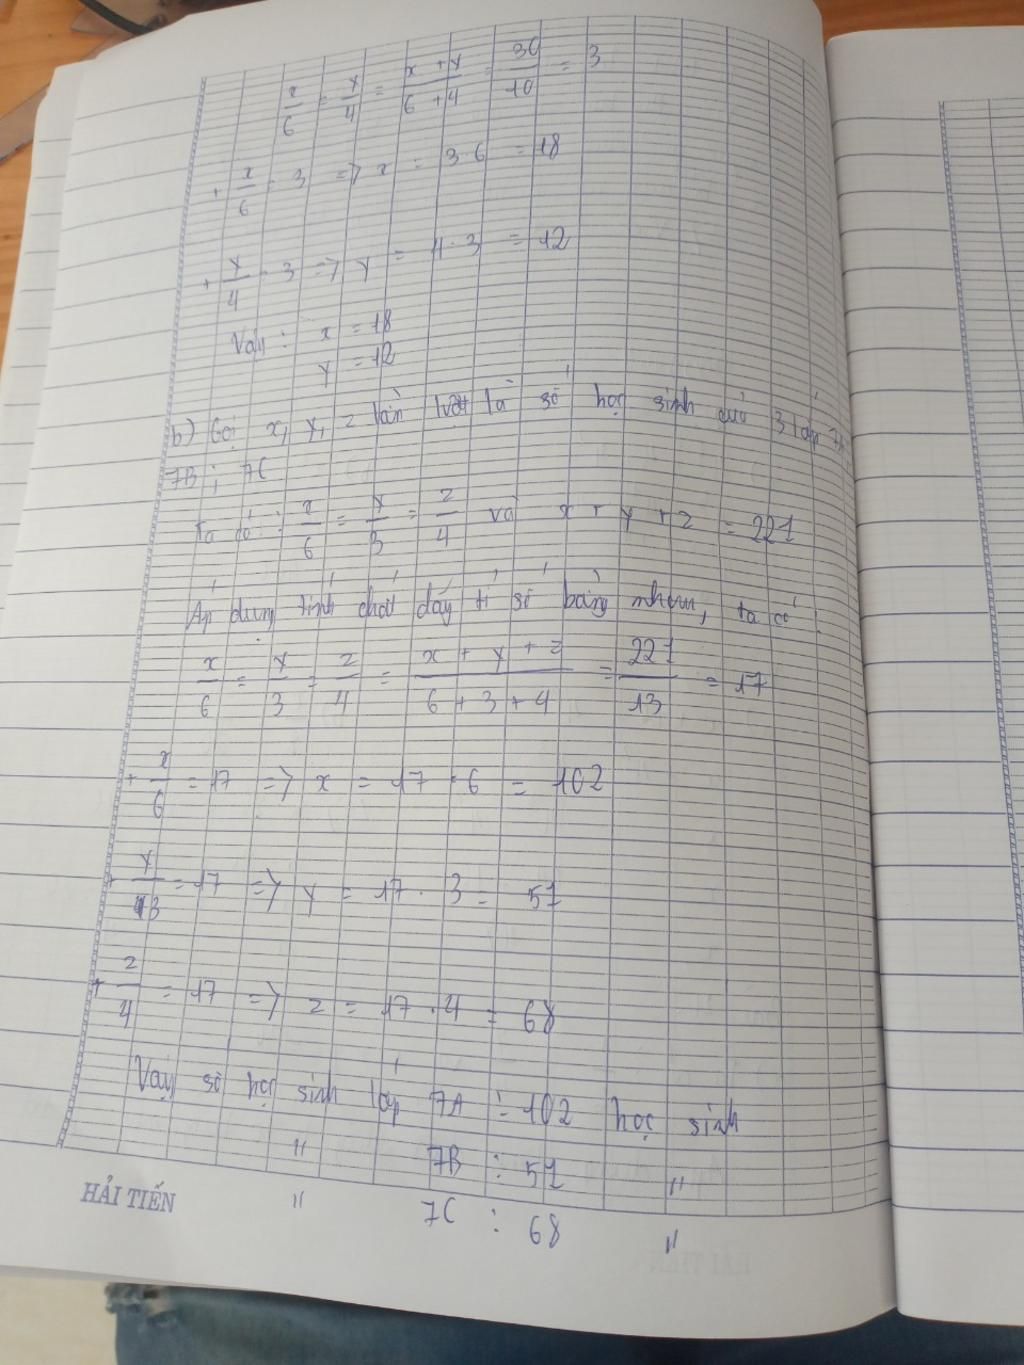 x/6 = y/4 = (x + y)/(6 + 4) = 30/10 = 3
+ x/6 = 3 => x = 3 . 6 = 18
+ y/4 = 3 => y = 4 . 3 = 12
Vậy : x = 18
y = 12
b) Gọi x, y, z lần lượt là số học sinh của 3 lớp 7A
7B ; 7C
Ta có : x/6 = y/3 = z/4 và x + y + z = 221
Áp dụng tính chất dãy tỉ số bằng nhau, ta có
x/6 = y/3 = z/4 = (x + y + z)/(6 + 3 + 4) = 221/13 = 17
+ x/6 = 17 => x = 17 . 6 = 102
+ y/3 = 17 => y = 17 . 3 = 51
+ z/4 = 17 => z = 17 . 4 = 68
Vậy số học sinh lớp 7A : 102 học sinh
" 7B : 51 "
HẢI TIẾN " 7C : 68 "